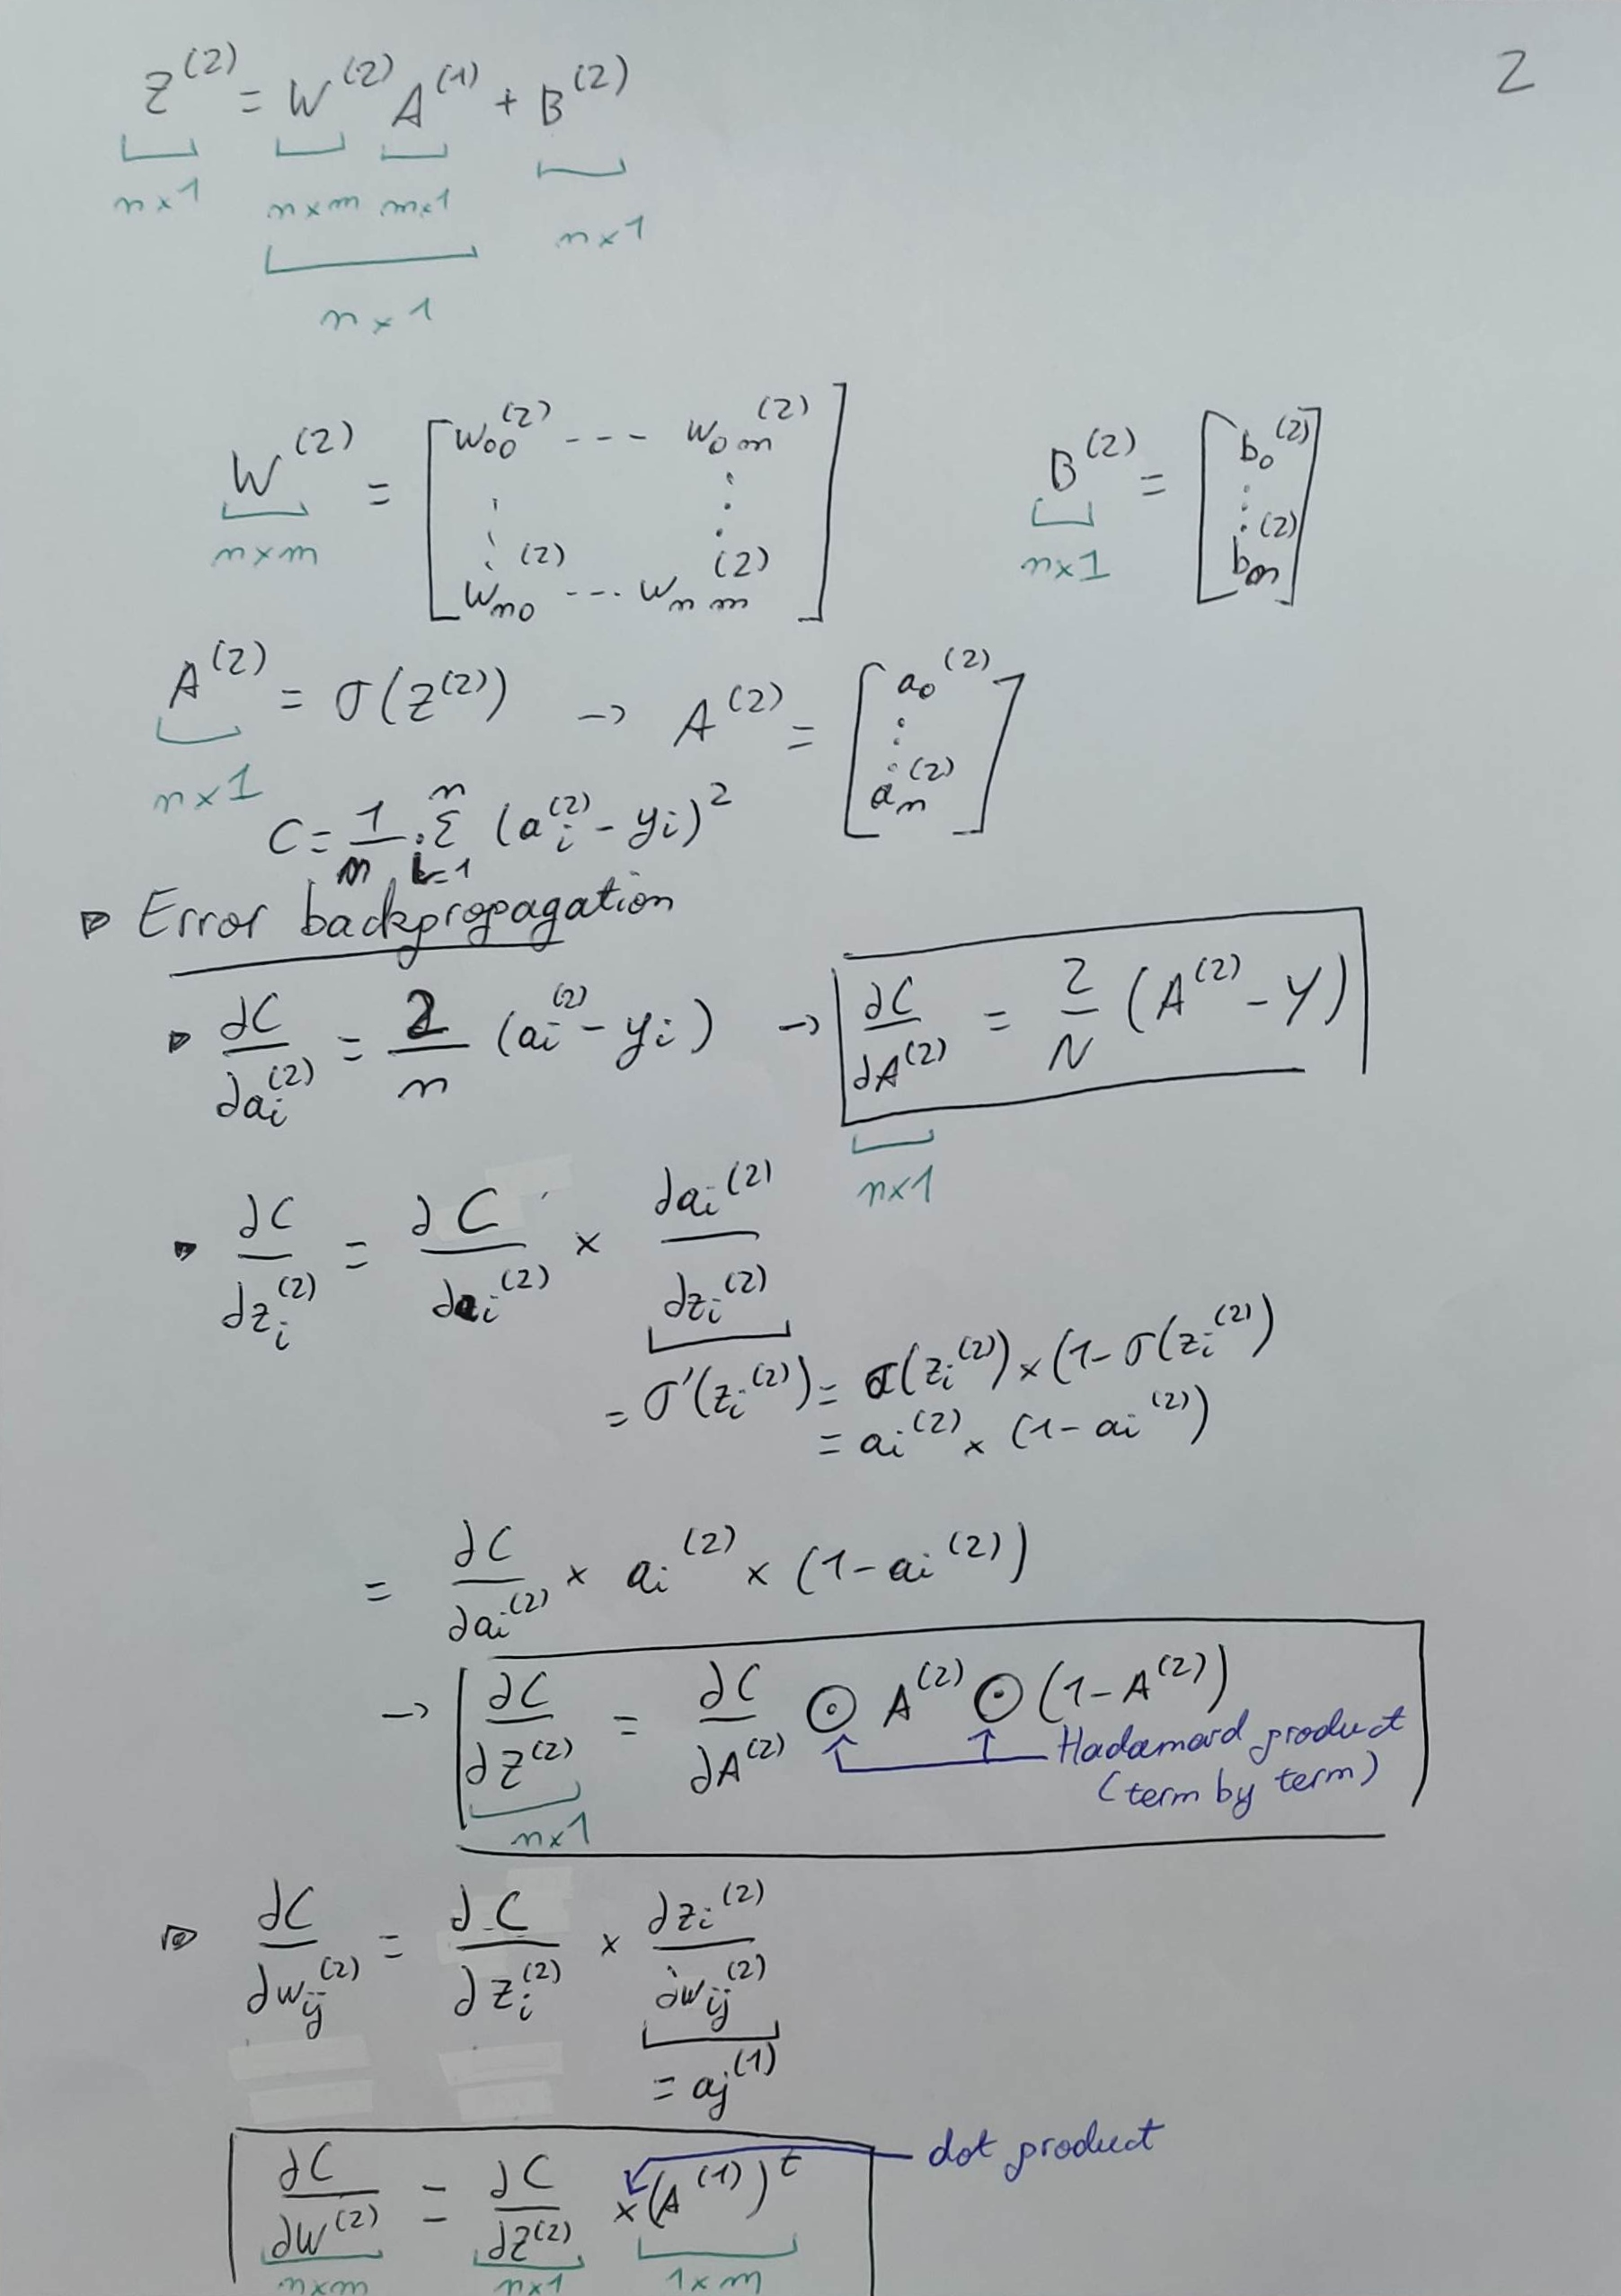 2
Z^(2) = W^(2) A^(1) + B^(2)
n×1 n×m m×1 n×1
n×1
W^(2) = [ w_00^(2) --- w_0m^(2) ⋮ ⋮ w_n0^(2) --- w_nm^(2) ] B^(2) = [ b_0^(2) ⋮ b_n^(2) ]
n×m n×1
A^(2) = σ(Z^(2)) → A^(2) = [ a_0^(2) ⋮ a_n^(2) ]
n×1
C = 1/n Σ_{i=1}^{n} (a_i^(2) - y_i)^2
Error backpropagation
∂C/∂a_i^(2) = 2/n (a_i^(2) - y_i) → ∂C/∂A^(2) = 2/N (A^(2) - Y)
n×1
∂C/∂z_i^(2) = ∂C/∂a_i^(2) × ∂a_i^(2)/∂z_i^(2)
= σ'(z_i^(2)) = σ(z_i^(2)) × (1 - σ(z_i^(2))
= a_i^(2) × (1 - a_i^(2))
= ∂C/∂a_i^(2) × a_i^(2) × (1 - a_i^(2))
→ ∂C/∂Z^(2) = ∂C/∂A^(2) ⊙ A^(2) ⊙ (1 - A^(2))
Hadamard product
(term by term)
n×1
∂C/∂w_ij^(2) = ∂C/∂z_i^(2) × ∂z_i^(2)/∂w_ij^(2)
= a_j^(1)
dot product
∂C/∂W^(2) = ∂C/∂Z^(2) × (A^(1))^t
n×m n×1 1×m